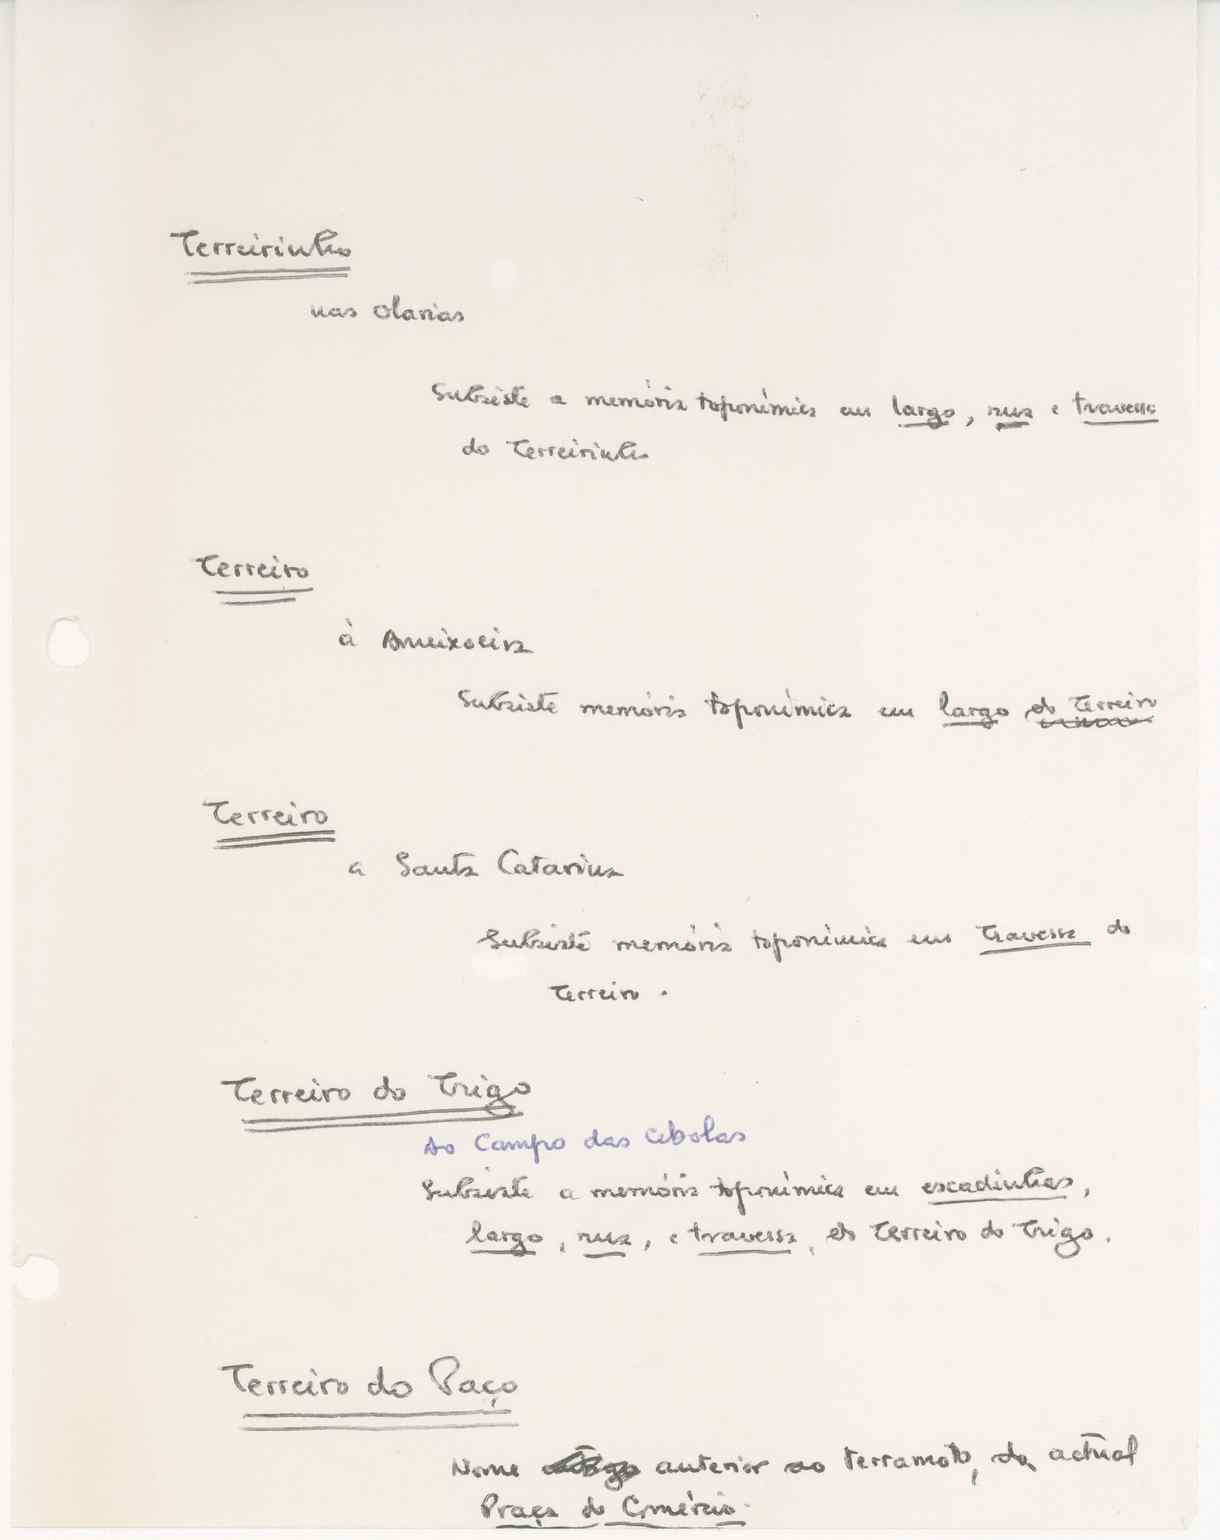 Terreirinho
nas Olarias
Subsiste a memória toponímica em largo, rua e travessa
do Terreirinho
Terreiro
à Ameixoeira
Subsiste memória toponímica em largo do Terreiro
Terreiro
a Santa Catarina
Subsiste memória toponímica em travessa do
Terreiro.
Terreiro do Trigo
Ao Campo das Cebolas
Subsiste a memória toponímica em escadinhas,
largo, rua, e travessa, do Terreiro do Trigo.
Terreiro do Paço
Nome anterior ao terramoto, da actual
Praça do Comércio.